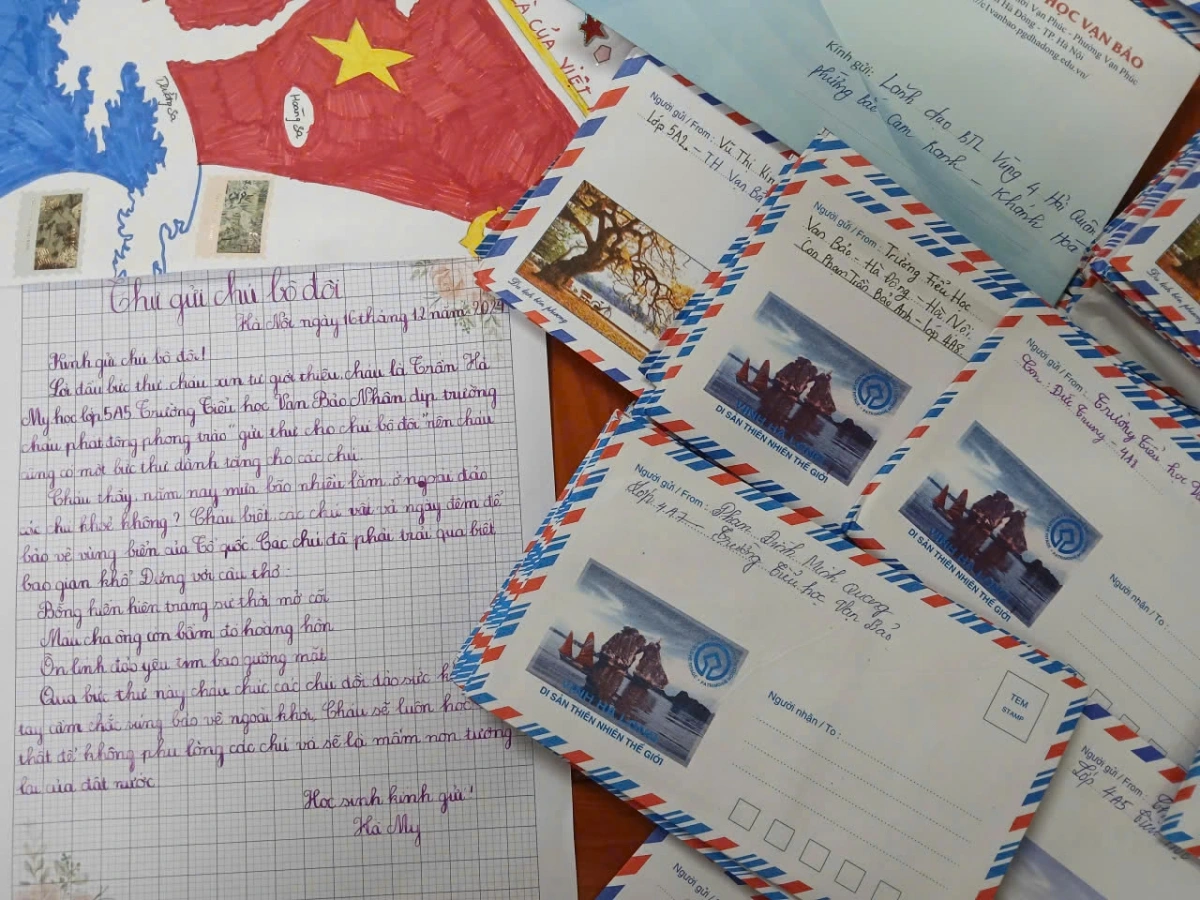 À CỦA VIỆT
Trường Sa
Hoàng Sa
HỌC VẠN BẢO
Vạn Phúc - Phường Vạn Phúc
Hà Đông - TP. Hà Nội
c1vanbao.pgdhadong.edu.vn/
Kính gửi: Lãnh đạo BTL Vùng 4 Hải Quân
phường bắc Cam Ranh - Khánh Hoà
Thư gửi chú bộ đội
Hà Nội ngày 16 tháng 12 năm 2024
Kính gửi chú bộ đội!
Lời đầu bức thư cháu xin tự giới thiệu, cháu là Trần Hà
My học lớp 5A5 Trường Tiểu học Vạn Bảo Nhân dịp trường
cháu phát động phong trào "gửi thư cho chú bộ đội" nên cháu
cũng có một bức thư dành tặng cho các chú
Cháu thấy năm nay mưa bão nhiều lắm, ở ngoài đảo
các chú khoẻ không? Cháu biết các chú vất vả ngày đêm để
bảo vệ vùng biển của Tổ quốc Các chú đã phải trải qua biết
bao gian khổ Đứng với câu thơ:
Bỗng luôn hiện trang sử thời mở cõi
Máu cha ông còn bầm đỏ hoàng hôn
Ơn lính đảo yêu tim bao gương mặt
Qua bức thư này cháu chúc các chú dồi dào sức
tay cầm chắc súng bảo vệ ngoài khơi, Cháu sẽ luôn học
thật để không phụ lòng các chú và sẽ là mầm non tương
lai của đất nước
Học sinh kính gửi!
Hà My
Người gửi / From: Vũ Thị
Lớp 5A2 - TH Vạn
Người gửi / From: Trường Tiểu Học
Vạn Bảo - Hà Đông - Hà Nội
Con Phan Trần Bảo Anh - lớp 4A8
VỊNH HẠ LONG
DI SẢN THIÊN NHIÊN THẾ GIỚI
Người gửi / From: Trường Tiểu học
Con: Đức Trung - 4A8
VỊNH HẠ LONG
DI SẢN THIÊN NHIÊN THẾ GIỚI
Người nhận / To:
Người gửi / From: Phan Đình Minh Quang
Lớp 4A7 - Trường Tiểu học Vạn Bảo
VỊNH HẠ LONG
DI SẢN THIÊN NHIÊN THẾ GIỚI
Người nhận / To:
TEM
STAMP
Người gửi / From:
Lớp 4A5
Người gửi / From: